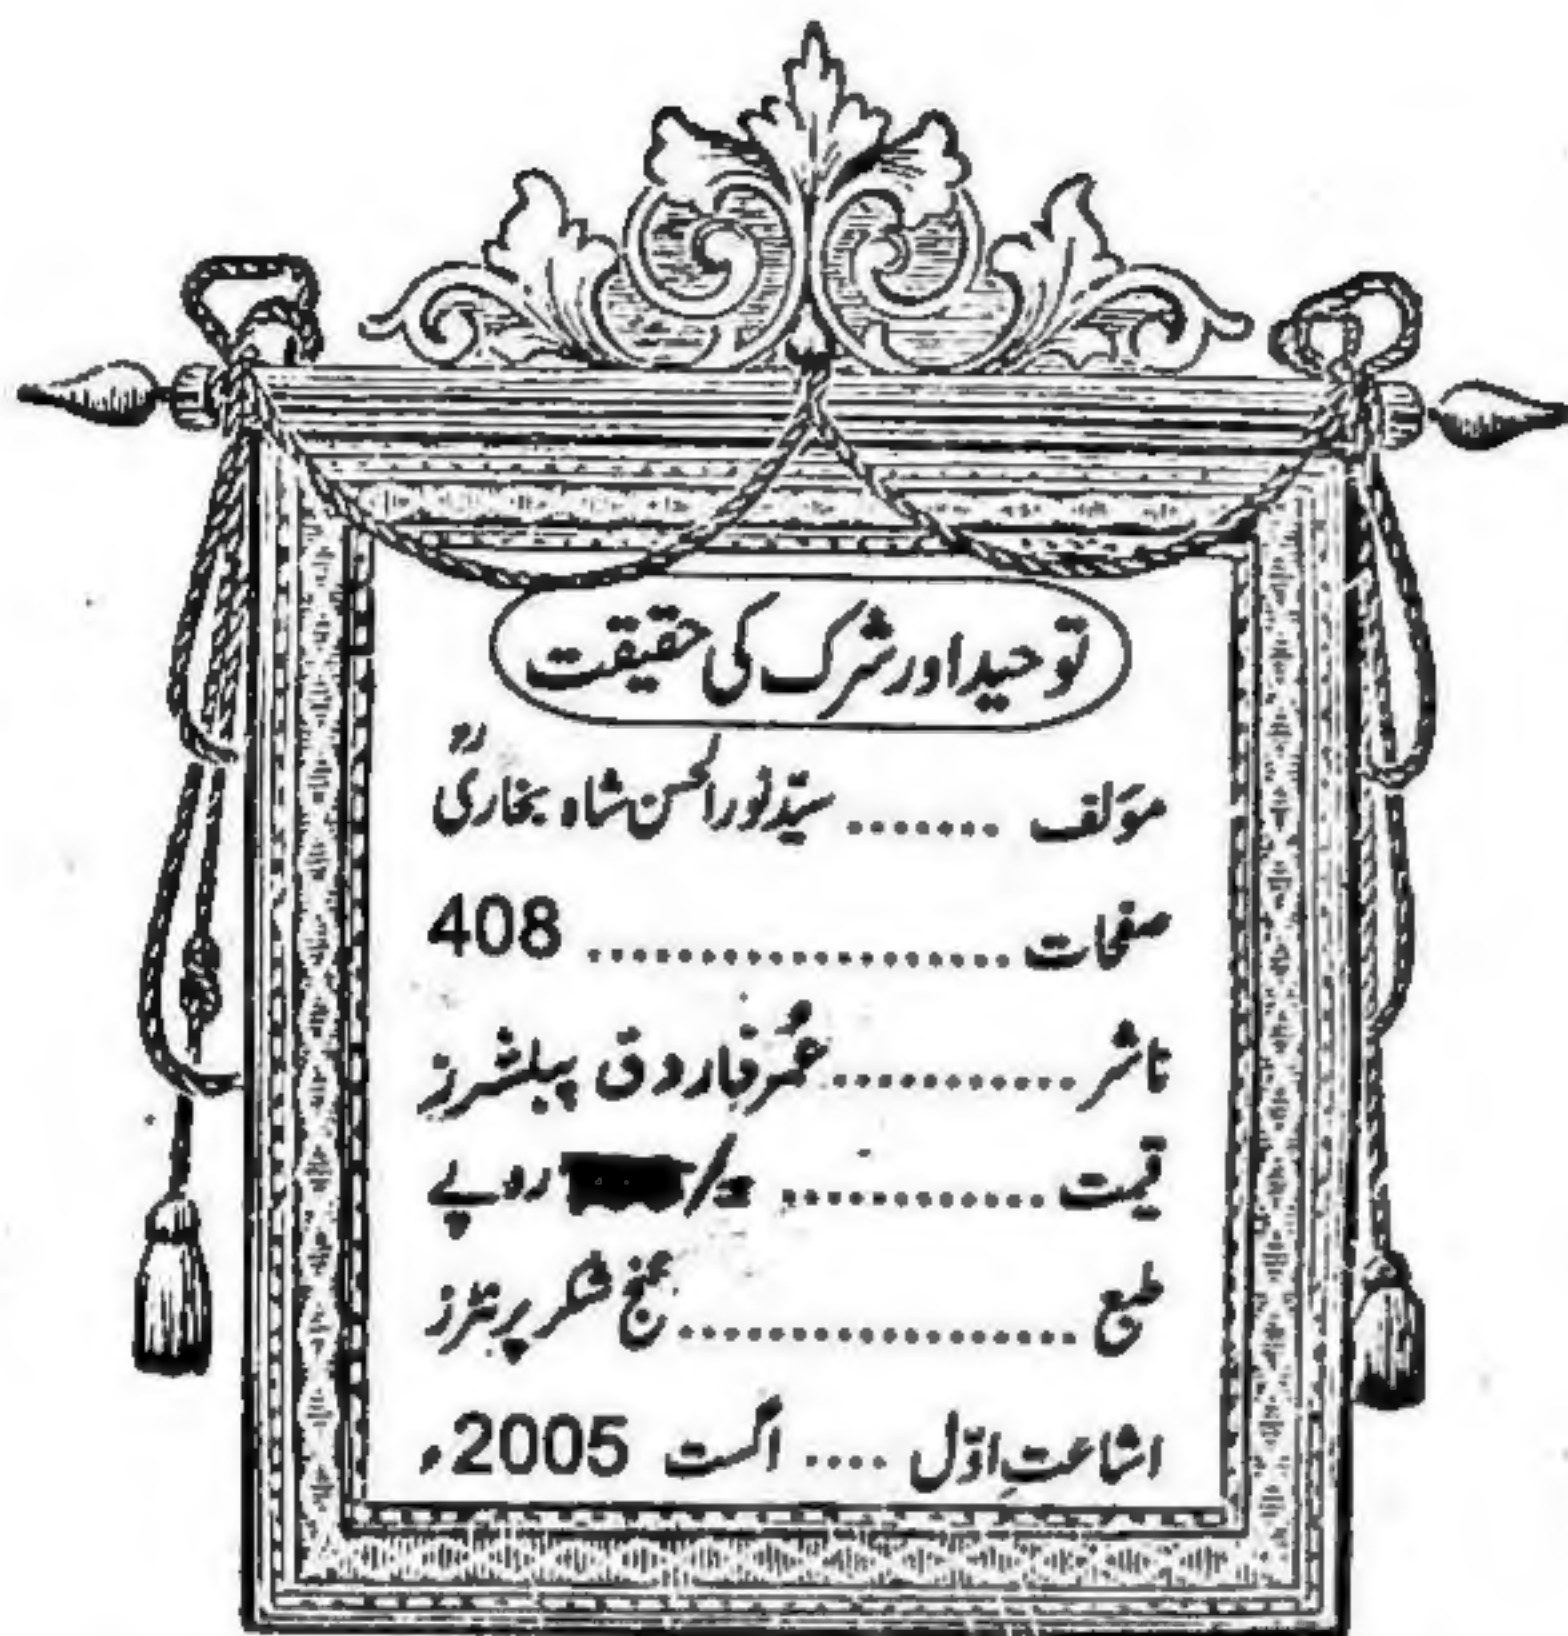 توحید اور شرک کی حقیقت
مؤلف ....... سیّد نور الحسن شاہ بخاریؒ
صفحات ................... 408
ناشر ........... عُمر فاروق پبلشرز
قیمت ............ /= روپے
طبع .................. گنج شکر پرنٹرز
اشاعتِ اوّل .... اگست 2005ء